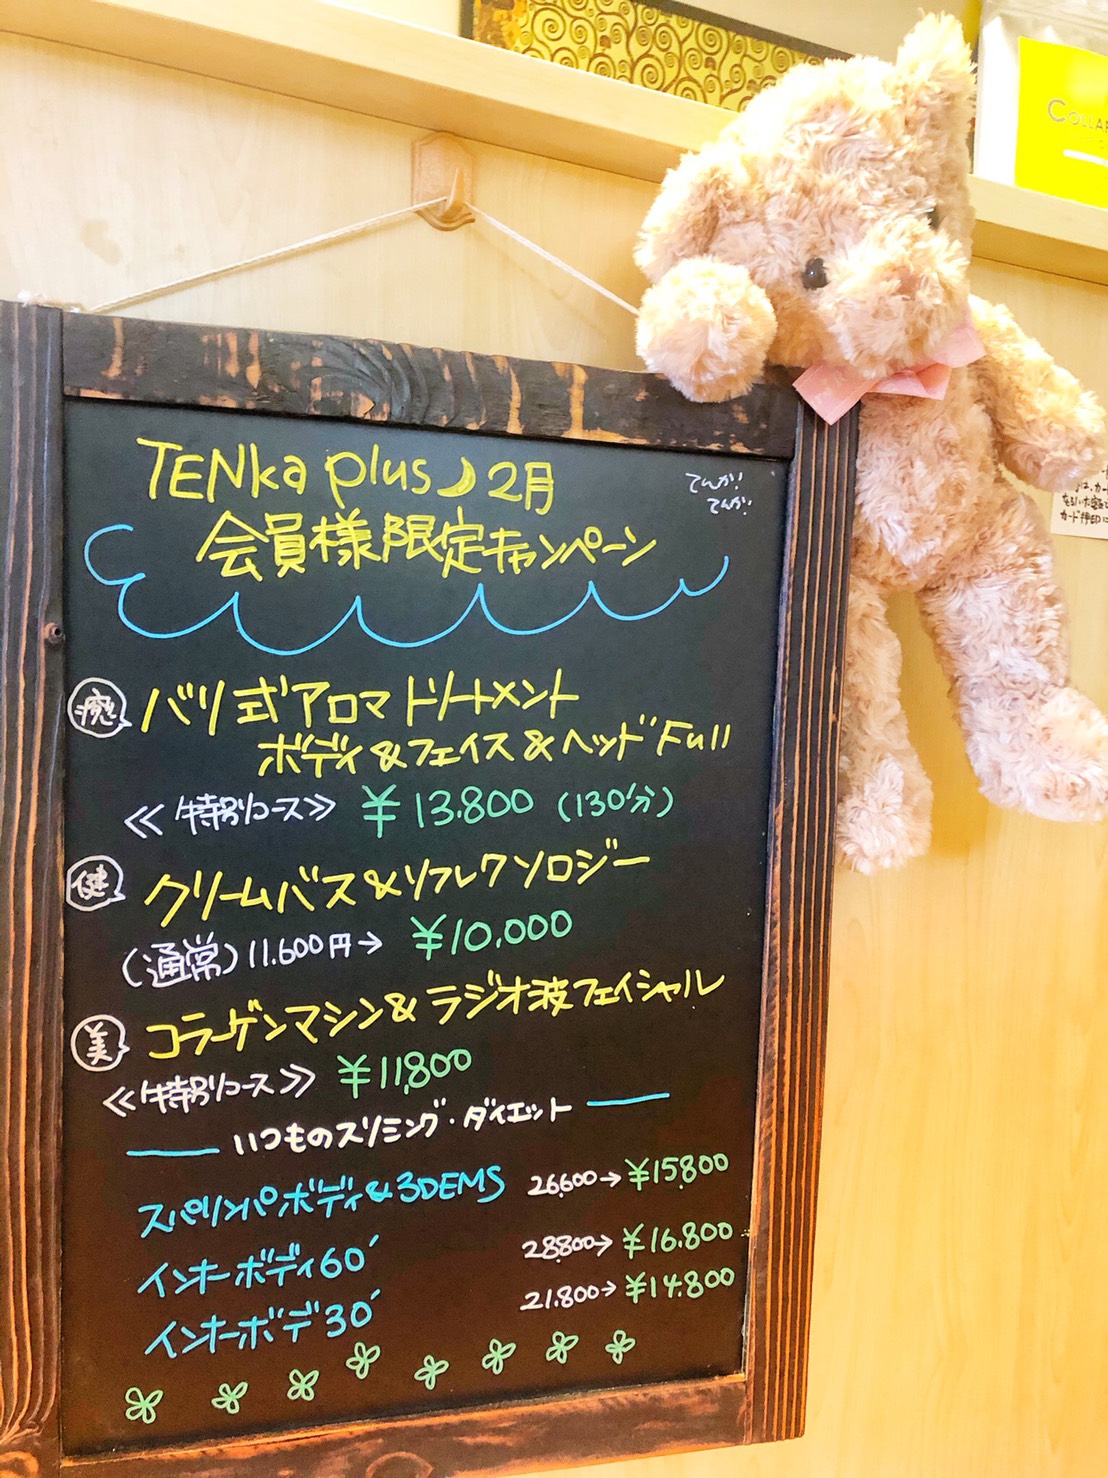 TENka plus 2月
てんか!
てんか!
会員様限定キャンペーン
癒 バリ式アロマトリートメント
ボディ&フェイス&ヘッドFull
≪特別コース≫ ¥13.800 (130分)
健 クリームバス&リフレクソロジー
(通常)11.600円→ ¥10,000
美 コラーゲンマシン&ラジオ波フェイシャル
≪特別コース≫ ¥11,800
いつものスリミング・ダイエット
スパリンパボディ&3DEMS 26,600→¥15,800
インナーボディ60′ 28,800→¥16.800
インナーボデ30′ 21.800→¥14.800
COLLA
カード押印に